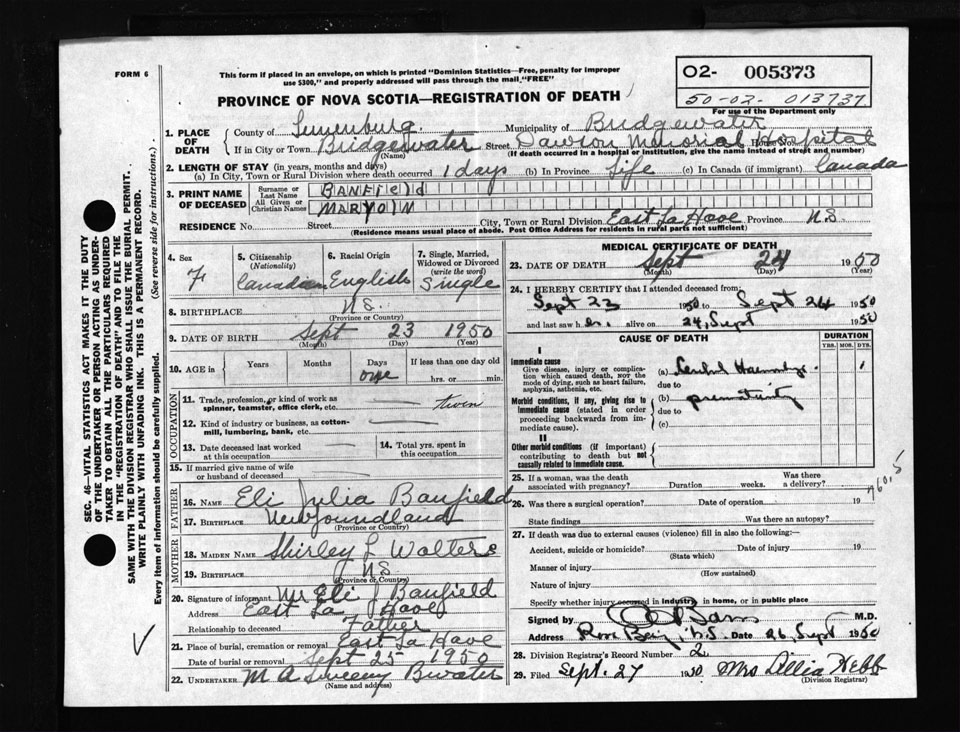 FORM 6
This form if placed in an envelope, on which is printed "Dominion Statistics—Free, penalty for improper
use $300," and properly addressed will pass through the mail "FREE"
O2- 005373
50-02- 013737
For use of the Department only
PROVINCE OF NOVA SCOTIA—REGISTRATION OF DEATH
1. PLACE OF DEATH County of Lunenburg. Municipality of Bridgewater
If in City or Town Bridgewater (Name) Street Dawson Memorial House No. Hospital
(If death occurred in a hospital or institution, give the name instead of street and number)
2. LENGTH OF STAY (in years, months and days)
(a) In City, Town or Rural Division where death occurred 1 days (b) In Province Life (c) In Canada (if immigrant) Canada
3. PRINT NAME OF DECEASED
Surname or Last Name BANFIELD
All Given or Christian Names MARY
RESIDENCE No. Street City, Town or Rural Division East La Have Province N.S.
(Residence means usual place of abode. Post Office Address for residents in rural parts not sufficient)
4. Sex F
5. Citizenship (Nationality) Canadian
6. Racial Origin English
7. Single, Married, Widowed or Divorced (write the word) Single
8. BIRTHPLACE N.S.
(Province or Country)
9. DATE OF BIRTH Sept 23 1950
(Month) (Day) (Year)
10. AGE in Years Months Days one If less than one day old hrs. or min.
OCCUPATION
11. Trade, profession, or kind of work as spinner, teamster, office clerk, etc. twin
12. Kind of industry or business, as cotton-mill, lumbering, bank, etc.
13. Date deceased last worked at this occupation
14. Total yrs. spent in this occupation
15. If married give name of wife or husband of deceased
FATHER
16. Name Eli Julia Banfield
17. Birthplace Newfoundland
(Province or Country)
MOTHER
18. Maiden Name Shirley L Walters
19. Birthplace N.S.
(Province or Country)
20. Signature of informant Mr Eli J Banfield
Address East La Have
Relationship to deceased Father
21. Place of burial, cremation or removal East La Have
Date of burial or removal Sept 25 1950
22. Undertaker M A Sweeny Bwater
(Name and address)
MEDICAL CERTIFICATE OF DEATH
23. DATE OF DEATH Sept 24 1950
(Month) (Day) (Year)
24. I HEREBY CERTIFY that I attended deceased from:
Sept 23 1950 to Sept 24 1950
and last saw her alive on 24, Sept 1950
CAUSE OF DEATH
DURATION
YRS. MOS. DYS.
I
Immediate cause
Give disease, injury or complication which caused death, nor the mode of dying, such as heart failure, asphyxia, asthenia, etc.
(a) Cerebral Haemorrhage 1
due to
Morbid conditions, if any, giving rise to immediate cause (stated in order proceeding backwards from immediate cause).
(b) prematurity
due to
(c)
II
Other morbid conditions (if important) contributing to death but not causally related to immediate cause.
25. If a woman, was the death associated with pregnancy? Duration weeks. Was there a delivery?
26. Was there a surgical operation? Date of operation 19
State findings Was there an autopsy?
27. If death was due to external causes (violence) fill in also the following:—
Accident, suicide or homicide? Date of injury 19
(State which)
Manner of injury
(How sustained)
Nature of injury
Specify whether injury occurred in industry, in home, or in public place
Signed by M.D.
Address Rose Bay, N.S. Date 26, Sept 1950
28. Division Registrar's Record Number 2
29. Filed Sept. 27 1950 Mrs Lillia Webb
(Division Registrar)
SEC. 46—VITAL STATISTICS ACT MAKES IT THE DUTY
OF THE UNDERTAKER OR PERSON ACTING AS UNDERTAKER TO OBTAIN ALL THE PARTICULARS REQUIRED
IN THE "REGISTRATION OF DEATH" AND TO FILE THE
SAME WITH THE DIVISION REGISTRAR WHO SHALL ISSUE THE BURIAL PERMIT.
WRITE PLAINLY WITH UNFADING INK. THIS IS A PERMANENT RECORD.
Every item of information should be carefully supplied. (See reverse side for instructions.)